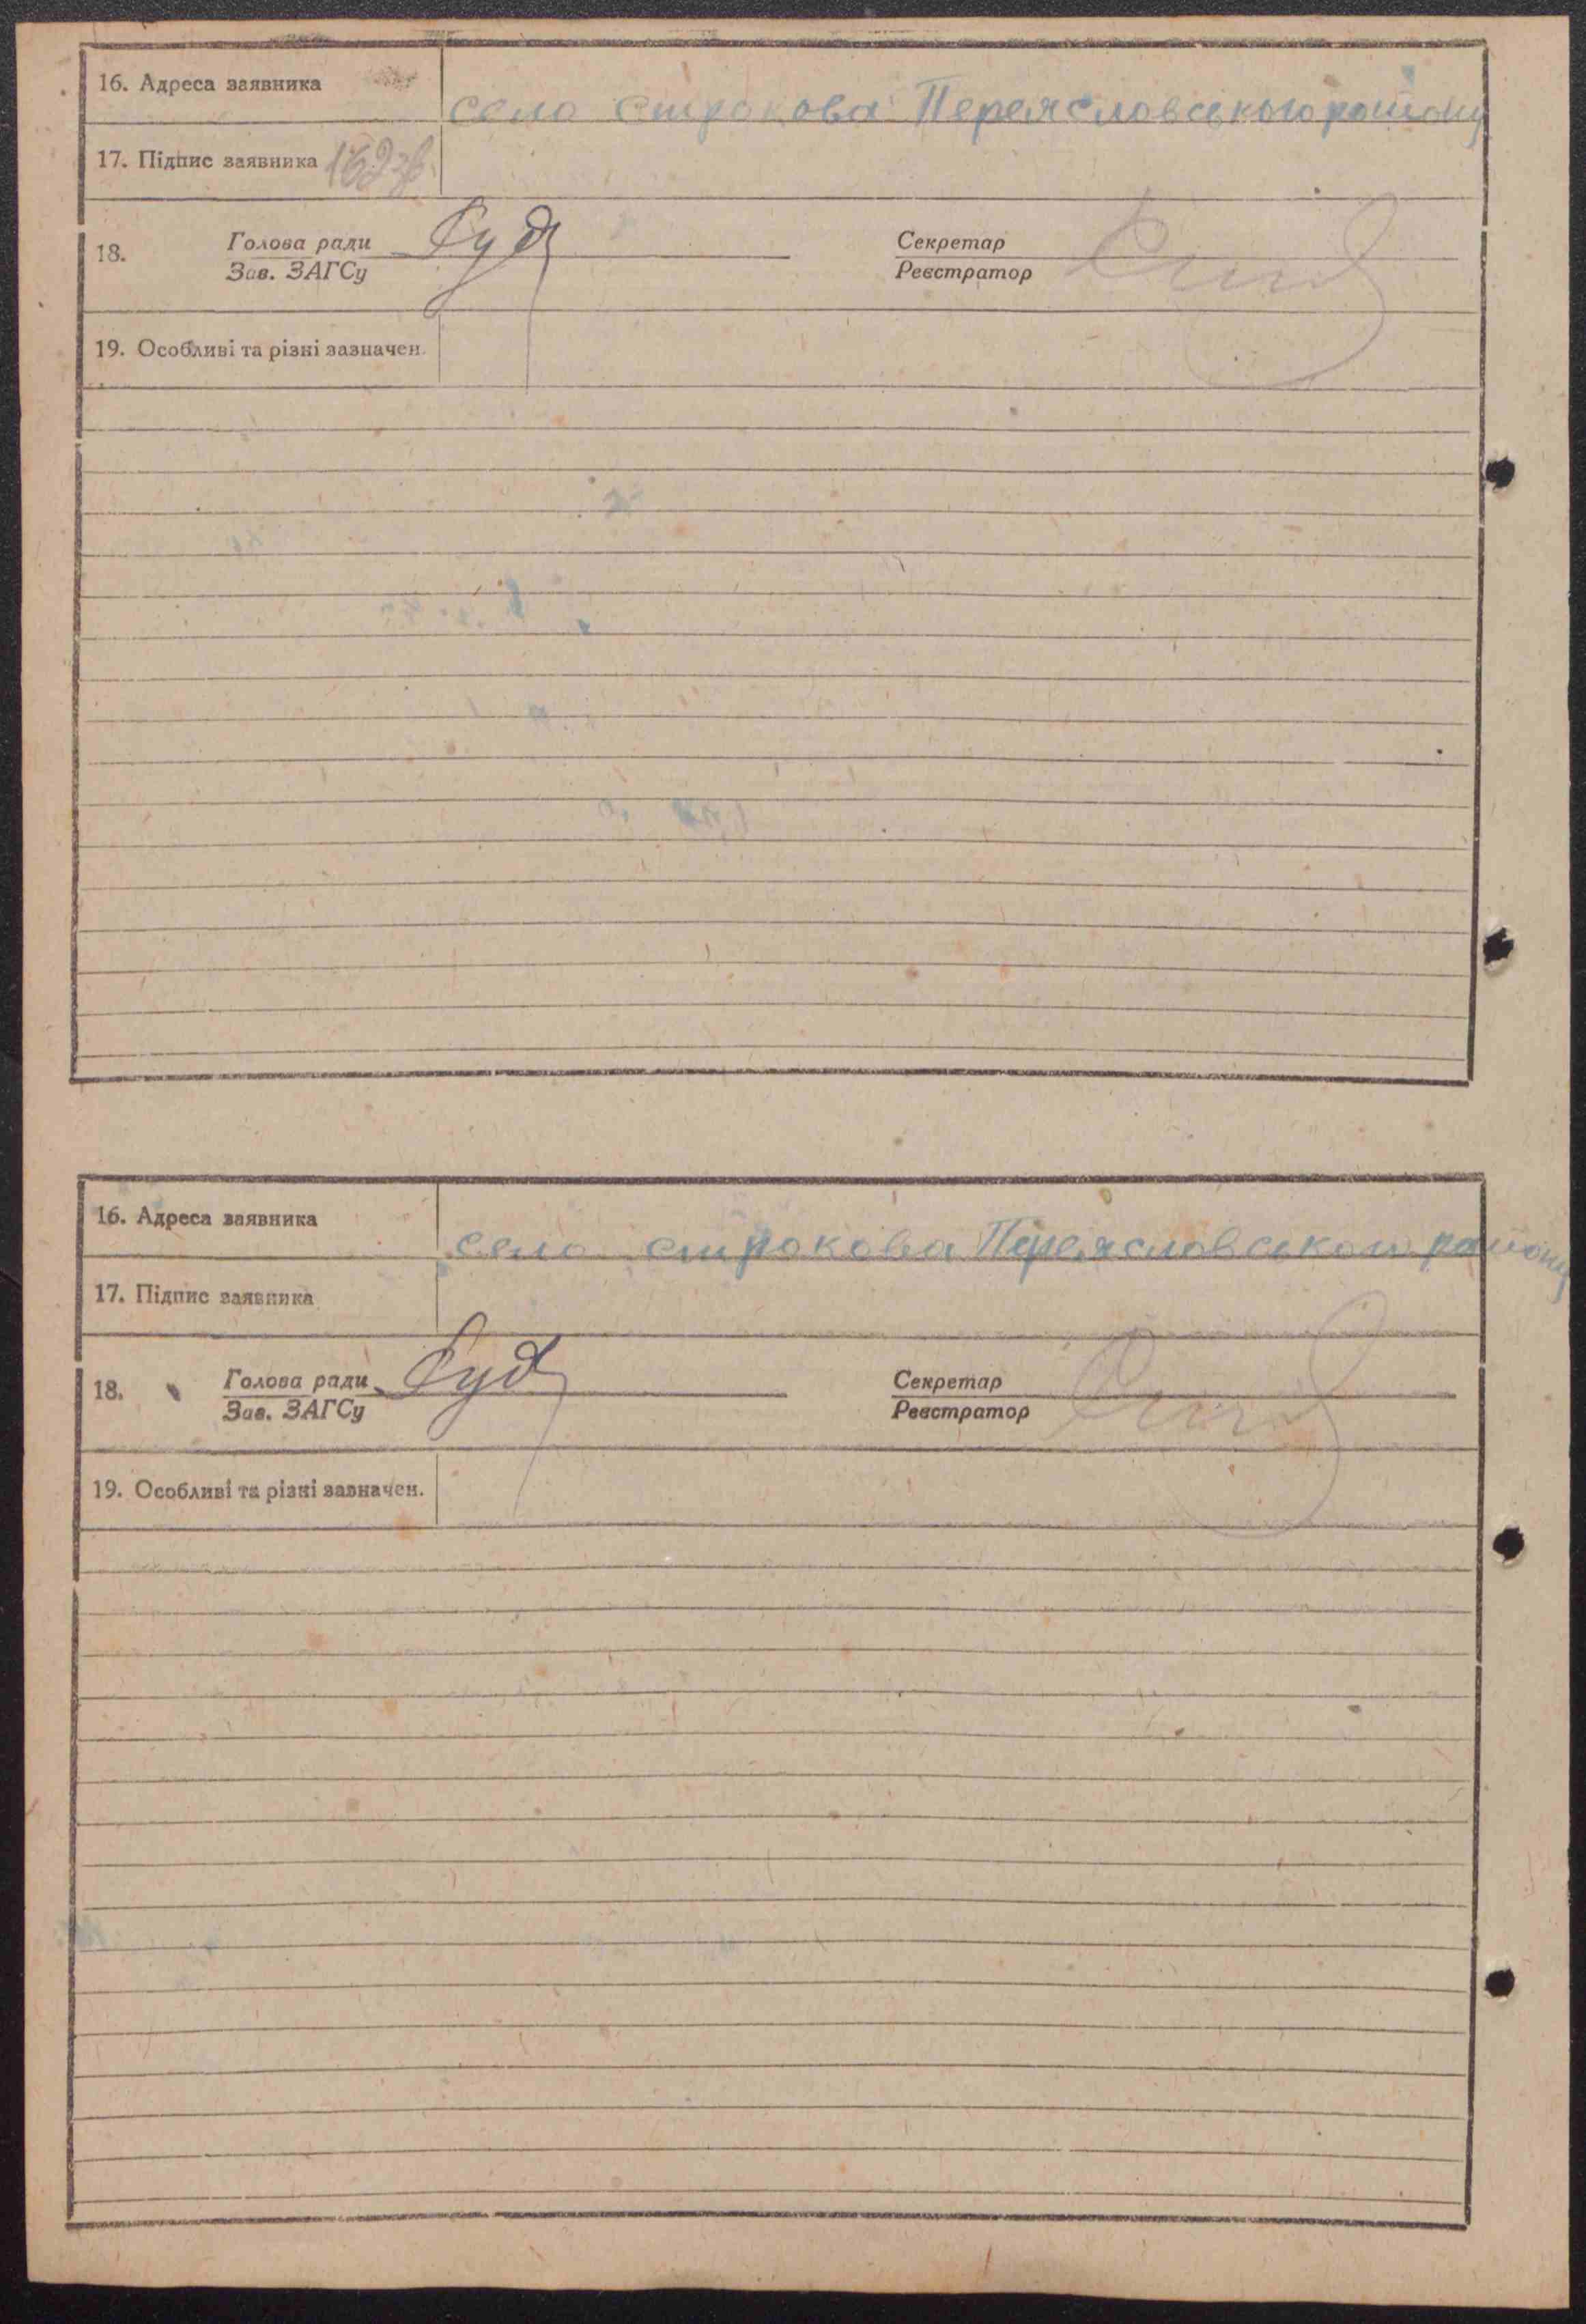 16. Адреса заявника
село строкова Переясловського району
17. Підпис заявника
18. Голова ради Секретар
Зав. ЗАГСу Реєстратор
19. Особливі та різні зазначен.
16. Адреса заявника
село строкова Переясловського району
17. Підпис заявника
18. Голова ради Секретар
Зав. ЗАГСу Реєстратор
19. Особливі та різні зазначен.